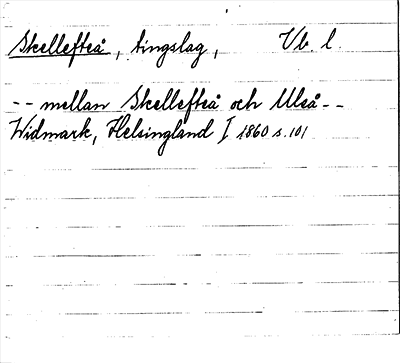 Skellefteå, tingslag, Vb. l.
-- mellan Skellefteå och Uleå--
Widmark, Helsingland I 1860 s. 101